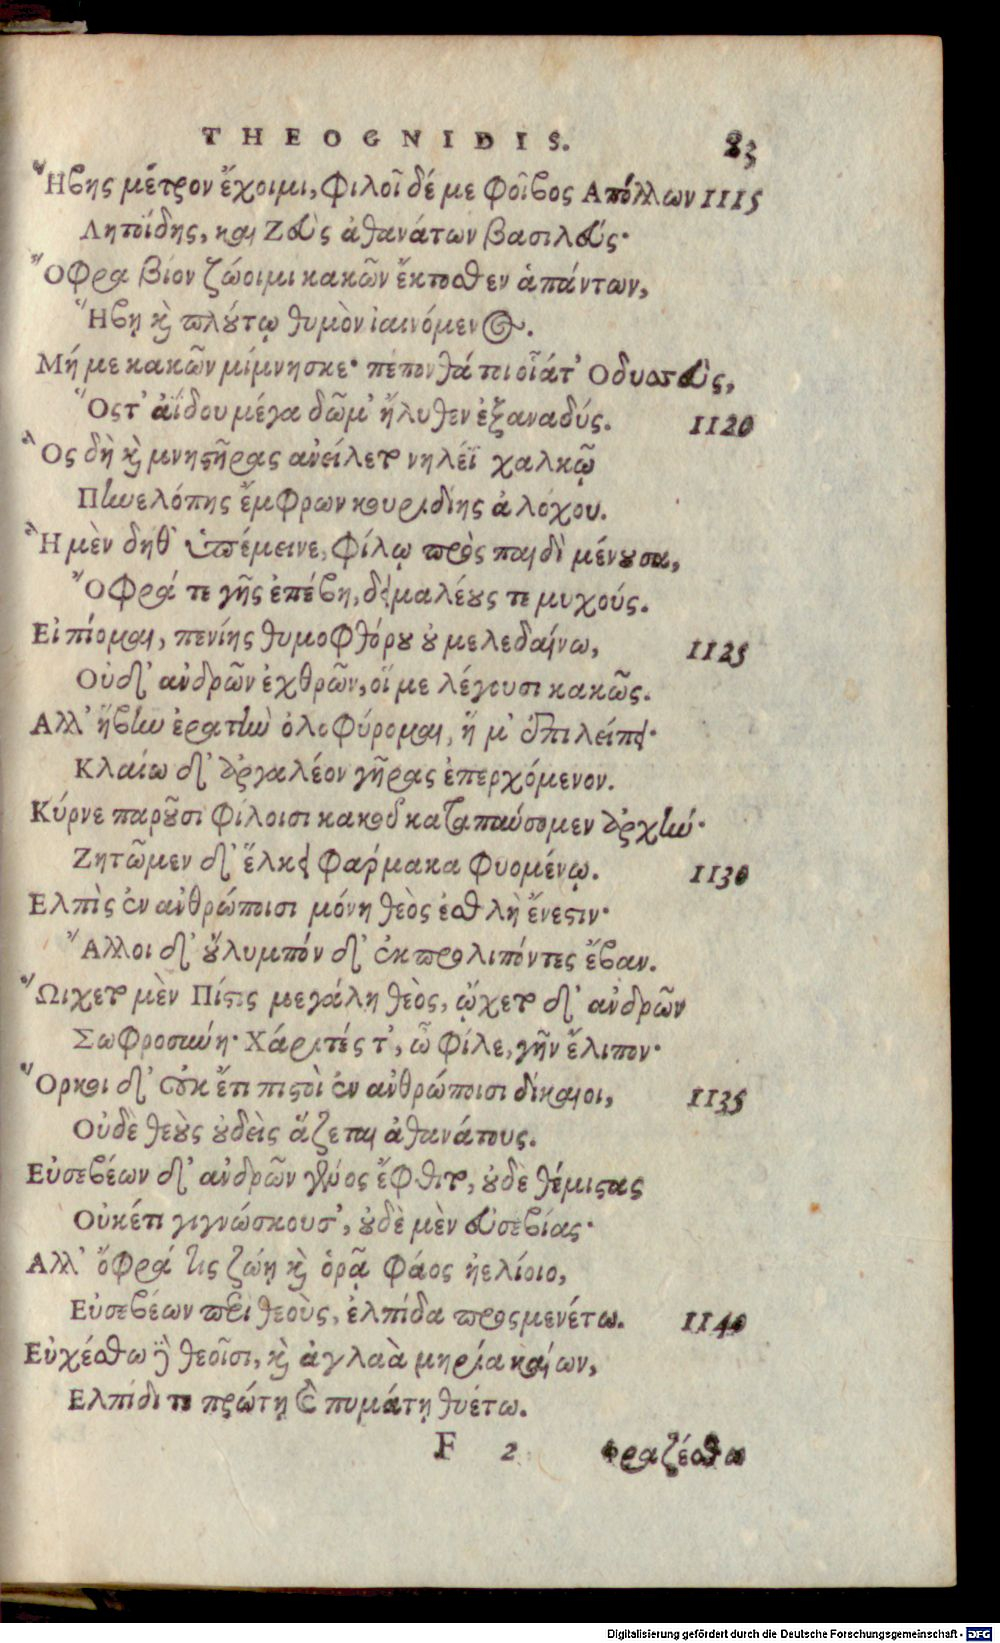 THEOGNIDIS. 83
Ἥβης μέτρον ἔχοιμι, φιλοῖ δέ με Φοῖβος Απόλλων 1115
Λητοΐδης, καὶ Ζεὺς ἀθανάτων βασιλεύς·
Ὄφρα βίον ζώοιμι κακῶν ἔκτοσθεν ἁπάντων,
Ἥβῃ καὶ πλούτῳ θυμὸν ἰαινόμενος.
Μή με κακῶν μίμνησκε· πέπονθά τοι οἷάτ' Οδυσσεὺς,
Ὅστ' ἀΐδου μέγα δῶμ' ἤλυθεν ἐξαναδύς. 1120
Ὃς δὴ καὶ μνηστῆρας ἀνείλετο νηλέϊ χαλκῷ
Πηνελόπης ἔμφρων κουριδίης ἀλόχου.
Ἣ μὲν δήθ' ὑπέμεινε, φίλῳ πρὸς παιδὶ μένουσα,
Ὄφρά τε γῆς ἐπέβη, δειμαλέους τε μυχούς.
Εἰ πίομαι, πενίης θυμοφθόρου οὐ μελεδαίνω, 1125
Οὐδ' ἀνδρῶν ἐχθρῶν, οἵ με λέγουσι κακῶς.
Αλλ' ἥβην ἐρατὴν ὀλοφύρομαι, ἥ μ' ἐπιλείπει·
Κλαίω δ' ἀργαλέον γῆρας ἐπερχόμενον.
Κύρνε παροῦσι φίλοισι κακοῦ καταπαύσομεν ἀρχήν·
Ζητῶμεν δ' ἕλκει φάρμακα φυομένῳ. 1130
Ελπὶς ἐν ἀνθρώποισι μόνη θεὸς ἐσθλὴ ἔνεστιν·
Ἄλλοι δ' οὔλυμπόν δ' ἐκπρολιπόντες ἔβαν.
Ὤιχετο μὲν Πίστις μεγάλη θεὸς, ᾤχετο δ' ἀνδρῶν
Σωφροσύνη· Χάριτές τ', ὦ φίλε, γῆν ἔλιπον·
Ὅρκοι δ' οὐκ ἔτι πιστοὶ ἐν ἀνθρώποισι δίκαιοι, 1135
Οὐδὲ θεοὺς οὐδεὶς ἅζεται ἀθανάτους.
Εὐσεβέων δ' ἀνδρῶν γένος ἔφθιτο, οὐδὲ θέμιστας
Οὐκέτι γιγνώσκουσ', οὐδὲ μὲν εὐσεβίας·
Αλλ' ὄφρά τις ζώῃ καὶ ὁρᾷ φάος ἠελίοιο,
Εὐσεβέων περὶ θεοὺς, ἐλπίδα προςμενέτω. 1140
Εὐχέσθω δὲ θεοῖσι, καὶ ἀγλαὰ μηρία καίων,
Ελπίδι τε πρώτῃ καὶ πυμάτῃ θυέτω.
F 2 φραζέσθω
Digitalisierung gefördert durch die Deutsche Forschungsgemeinschaft - DFG